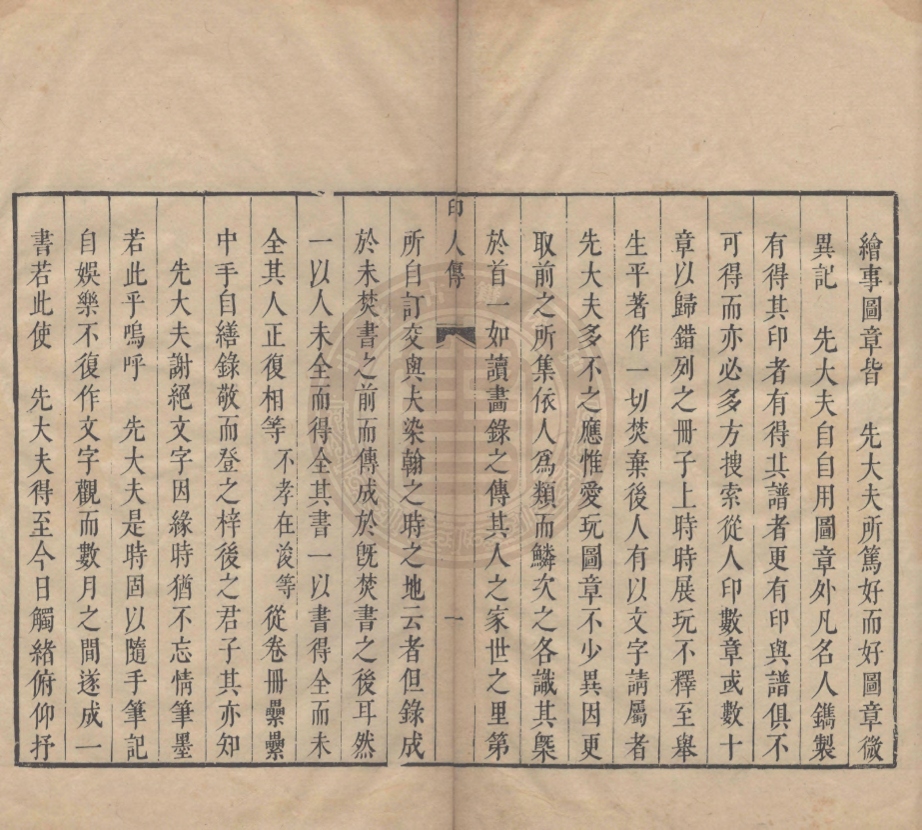 繪事圖章皆　先大夫所篤好而好圖章微
異記　先大夫自自用圖章外凡名人鐫製
有得其印者有得其譜者更有印與譜俱不
可得而亦必多方搜索從人印數章或數十
章以歸錯列之冊子上時時展玩不釋至舉
生平著作一切焚棄後人有以文字請屬者
先大夫多不之應惟愛玩圖章不少異因更
取前之所集依人爲類而鱗次之各識其槩
於首一如讀畫錄之傳其人之家世之里第
印人傳　一
所自訂交與夫染翰之時之地云者但錄成
於未焚書之前而傳成於旣焚書之後耳然
一以人未全而得全其書一以書得全而未
全其人正復相等　不孝在浚等從卷冊纍纍
中手自繕錄敬而登之梓後之君子其亦知
先大夫謝絕文字因緣時猶不忘情筆墨
若此乎嗚呼　先大夫是時固以隨手筆記
自娛樂不復作文字觀而數月之間遂成一
書若此使　先大夫得至今日觸緒俯仰抒